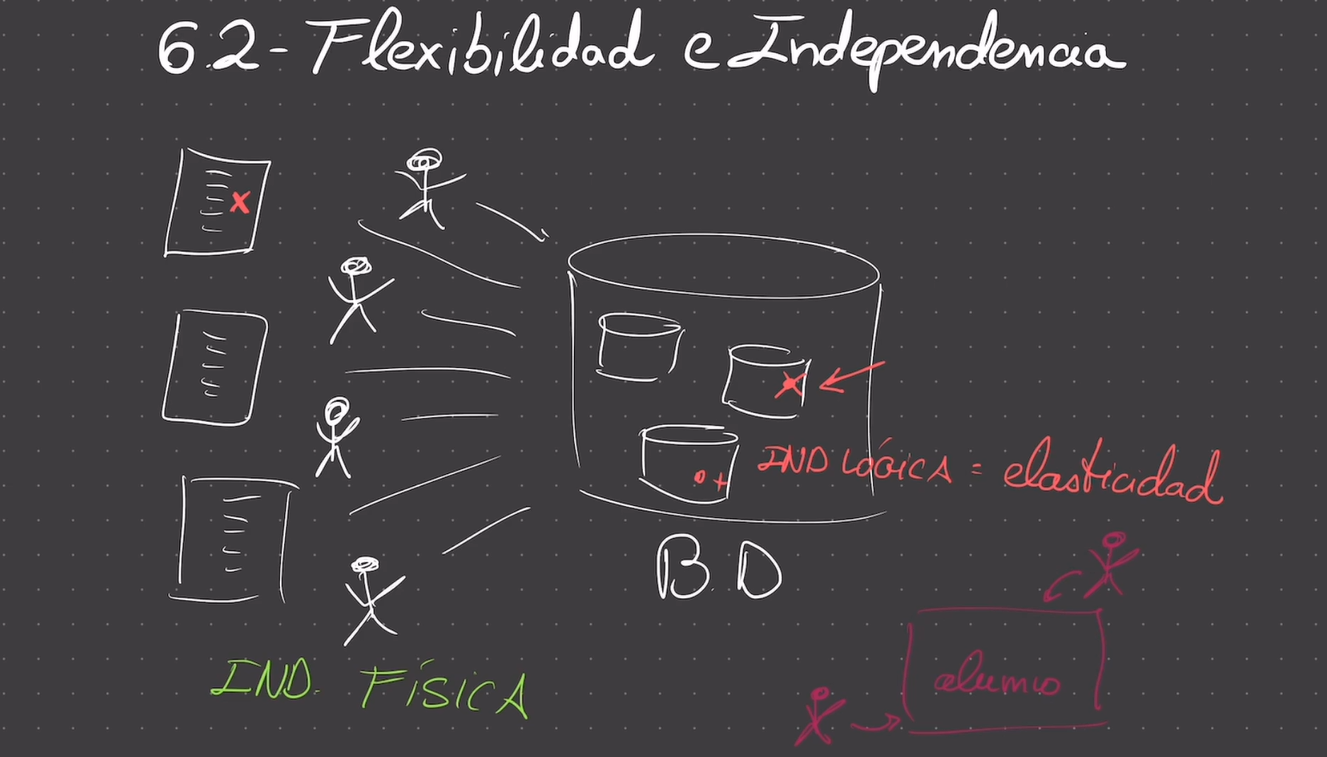 6.2- Flexibilidad e Independencia
IND LÓGICA = elasticidad
B.D
alumno
IND. FÍSICA